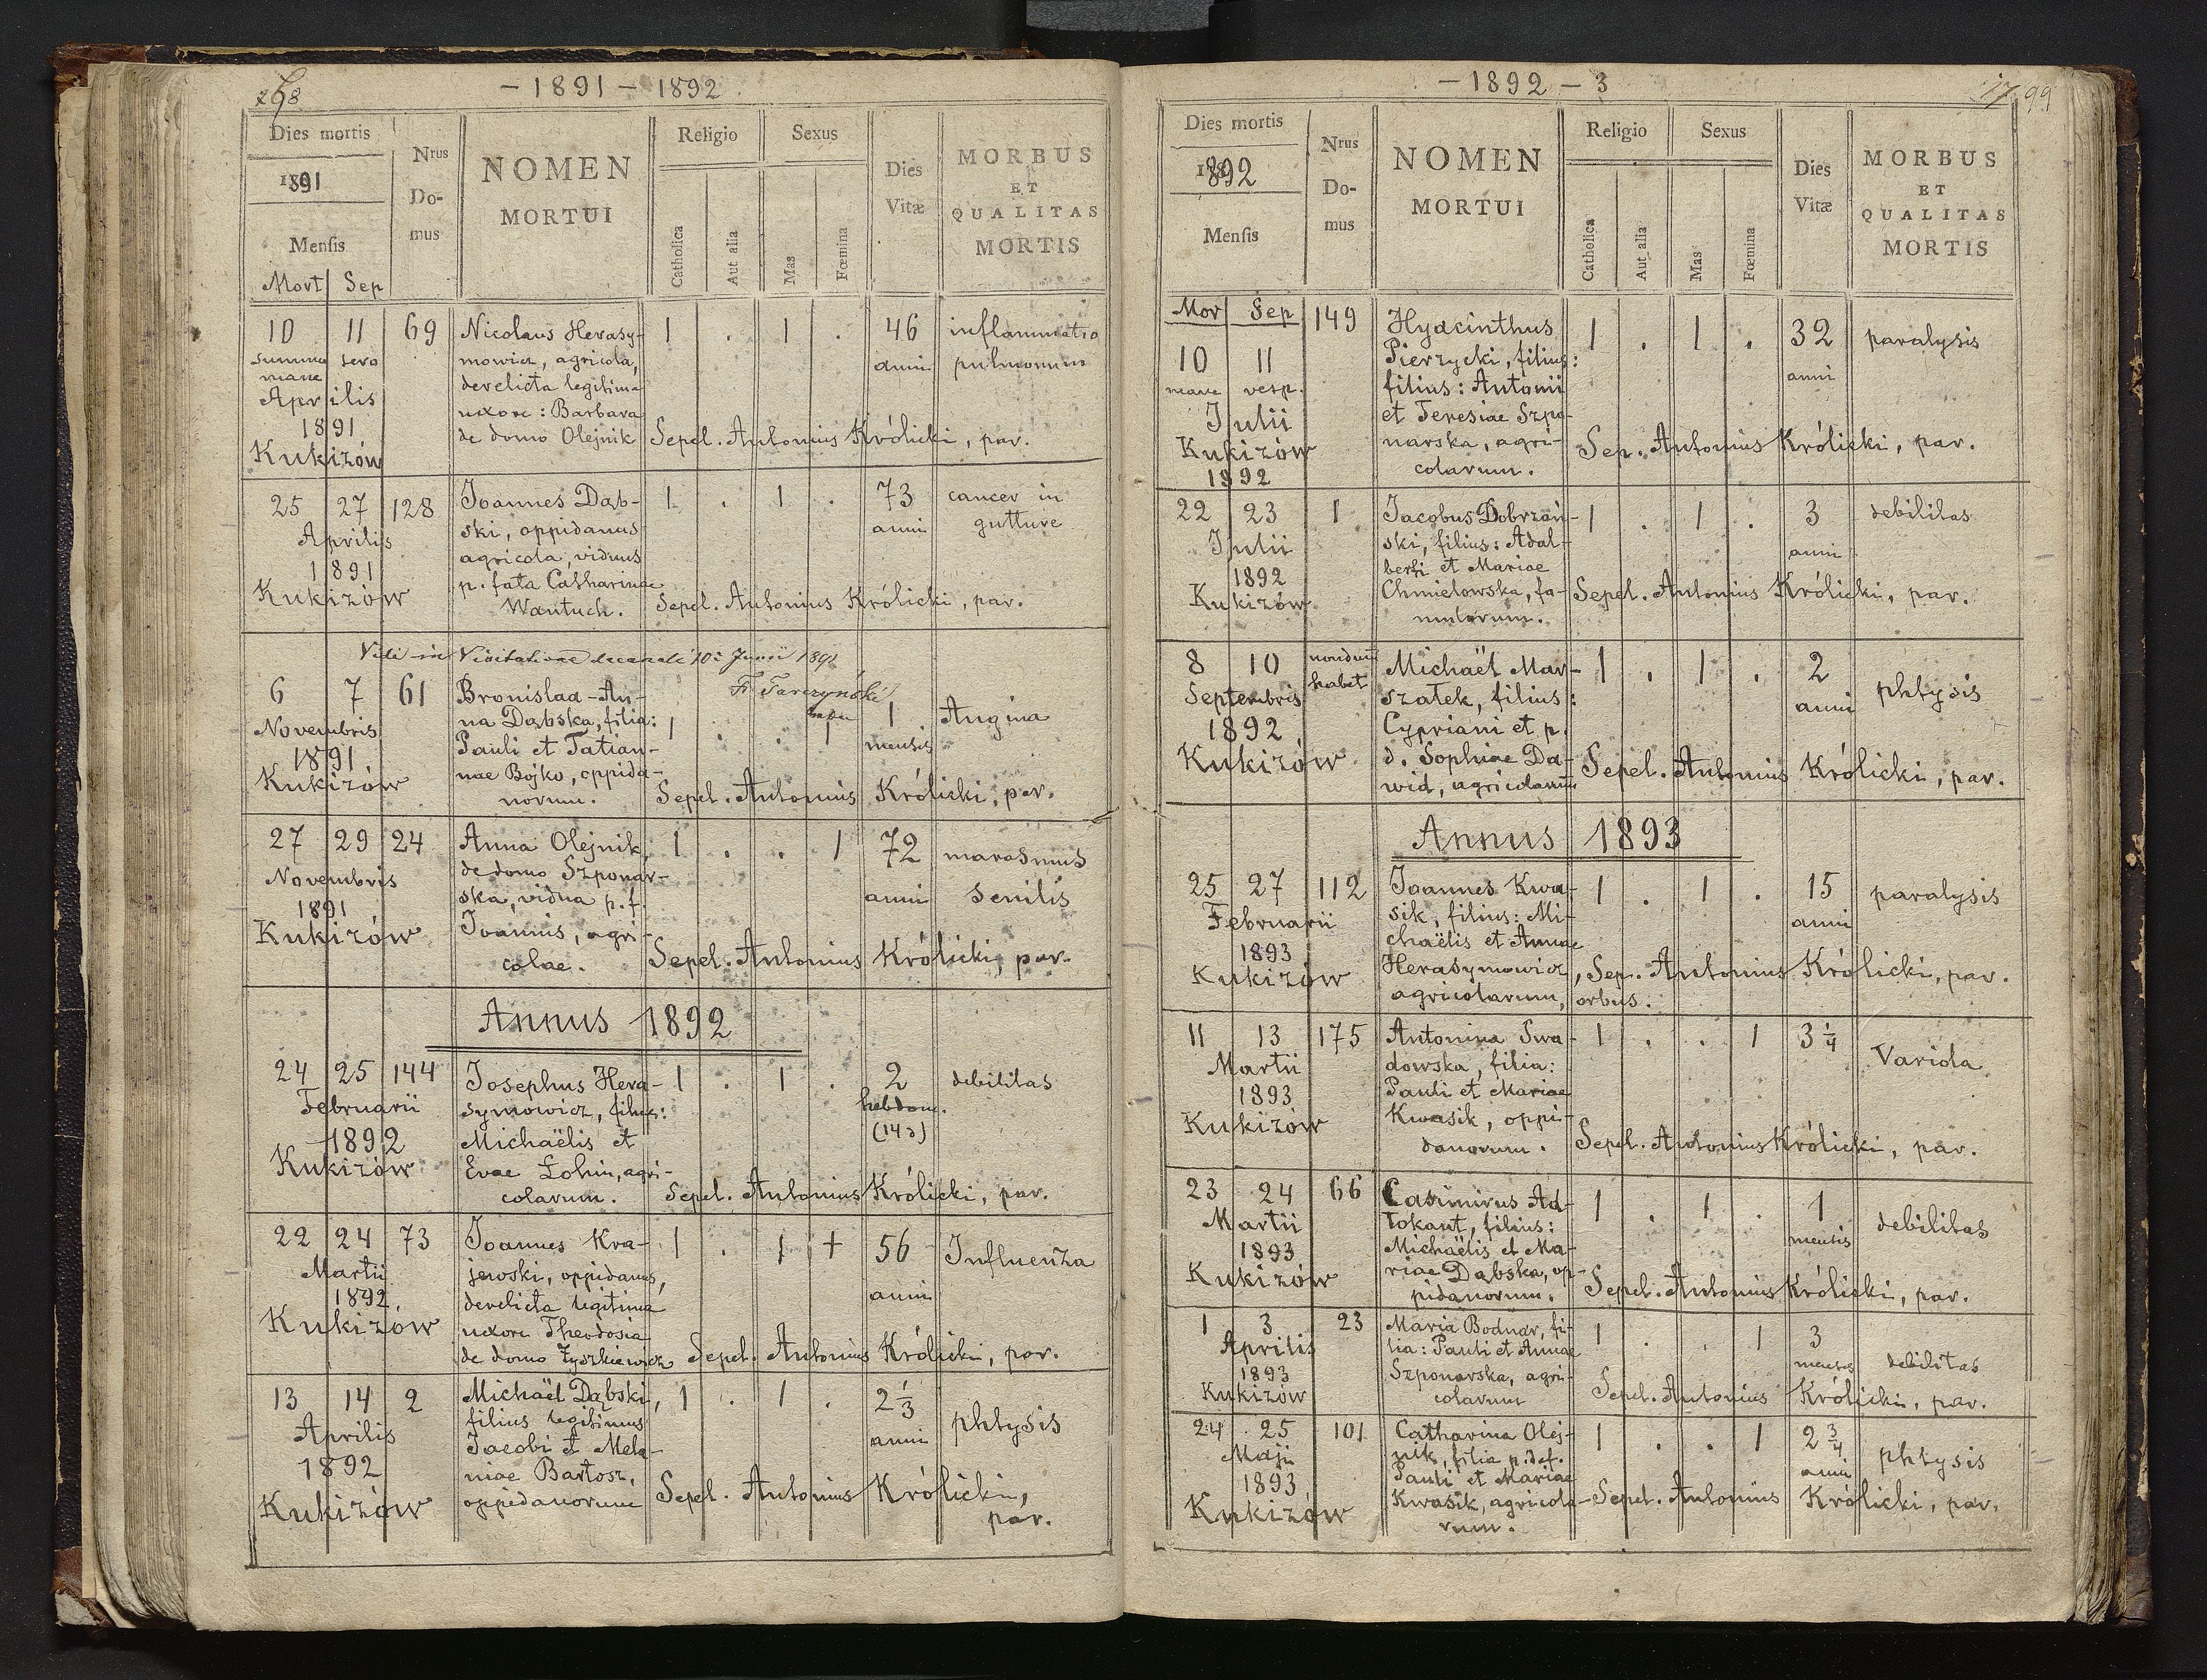 - 1891 - 1892
Dies mortis
1891
Mensis
Mort Sep
Nrus
Do-
mus
NOMEN
MORTUI
Religio
Catholica
Aut alia
Sexus
Mas
Fœmina
Dies
Vitæ
MORBUS
ET
QUALITAS
MORTIS
10 11 69 Nicolaus Herasy- 1 . 1 . 46 inflammatio
summo sero mowicz, agricola, anni pulmonum
mane derelicta legitima
Aprilis uxore: Barbara
1891 de domo Olejnik Sepel. Antonius Królicki, par.
Kukizów
25 27 128 Joannes Dąb- 1 . 1 . 73 cancer in
Aprilis ski, oppidanus anni gutture
1891 agricola, viduus
Kukizów p. fata Catharinae
Wantuch. Sepel. Antonius Królicki, par.
Vidi in Visitatione decanali 10 Junii 1891
F. Tarczyński
6 7 61 Bronislaa-An-
Novembris na Dąbska, filia: 1 . . 1 1 Angina
1891 Pauli et Tatian- mensis
Kukizów nae Bojko, oppida-
norum. Sepel. Antonius Królicki, par.
27 29 24 Anna Olejnik, 1 . . 1 72 marasmus
Novembris de domo Szponar- anni senilis
1891 ska, vidua p. f.
Kukizów Joannis, agri-
colae. Sepel. Antonius Królicki, par.
Annus 1892
24 25 144 Josephus Hera- 1 . 1 . 2 debilitas
Februarii symowicz, filius: hebdom.
1892 Michaëlis et (14 d)
Kukizów Evae Łohin, agri-
colarum. Sepel. Antonius Królicki, par.
22 24 73 Joannes Kra- 1 . 1 + 56 Influenza
Martii jewski, oppidanus, anni
1892, derelicta legitima
Kukizów uxore Theodosia
de domo Zyszkiewicz Sepel. Antonius Królicki, par.
13 14 2 Michaël Dąbski, 1 . 1 . 2 1/3 phtysis
Aprilis filius legitimus anni
1892 Jacobi et Mela-
Kukizów niae Bartosz, Sepel. Antonius Królicki,
oppidanorum par.
- 1892 - 3
99
Dies mortis
1892
Mensis
Nrus
Do-
mus
NOMEN
MORTUI
Religio
Catholica
Aut alia
Sexus
Mas
Fœmina
Dies
Vitæ
MORBUS
ET
QUALITAS
MORTIS
Mor Sep 149 Hyacinthus 1 . 1 . 32 paralysis
10 11 Pierzycki, filius: anni
mane vesp. filius: Antonii
Julii et Teresiae Szpo-
Kukizów narska, agri- Sep. Antonius Królicki, par.
1892 colarum.
22 23 1 Jacobus Dobrzań- 1 . 1 . 3 debilitas
Julii ski, filius: Adal- anni
1892 berti et Mariae
Kukizów Chmielowska, fa- Sepel. Antonius Królicki, par.
mulorum.
8 10 nondum habet Michaël Mar- 1 . 1 . 2 phtysis
Septembris szałek, filius: anni
1892 Cypriani et p.
Kukizów d. Sophiae Da- Sepel. Antonius Królicki, par.
wid, agricolarum
Annus 1893
25 27 112 Joannes Kwa- 1 . 1 . 15 paralysis
Februarii sik, filius: Mi- anni
1893 chaëlis et Annae
Kukizów Herasymowicz, Sep. Antonius Królicki, par.
agricolarum, orbus.
11 13 175 Antonina Swa- 1 . . 1 3 1/4 Variola
Martii dowska, filia:
1893 Pauli et Mariae
Kukizów Kwasik, oppi-
danorum. Sepel. Antonius Królicki, par.
23 24 66 Casimirus Ad- 1 . 1 . 1 debilitas
Martii wokant, filius: mensis
1893 Michaëlis et Ma-
Kukizów riae Dąbska, op-
pidanorum. Sepel. Antonius Królicki, par.
1 3 23 Maria Bodnar, fi- 1 . . 1 3 debilitas
Aprilis lia: Pauli et Annae menses
1893 Szponarska, agri-
Kukizów colarum Sepel. Antonius Królicki, par.
24 25 101 Catharina Olej- 1 . . 1 2 3/4 phtysis
Maji nik, filia p. def. anni
1893 Pauli et Mariae
Kukizów Kwasik, agricola- Sepel. Antonius Królicki, par.
rum.